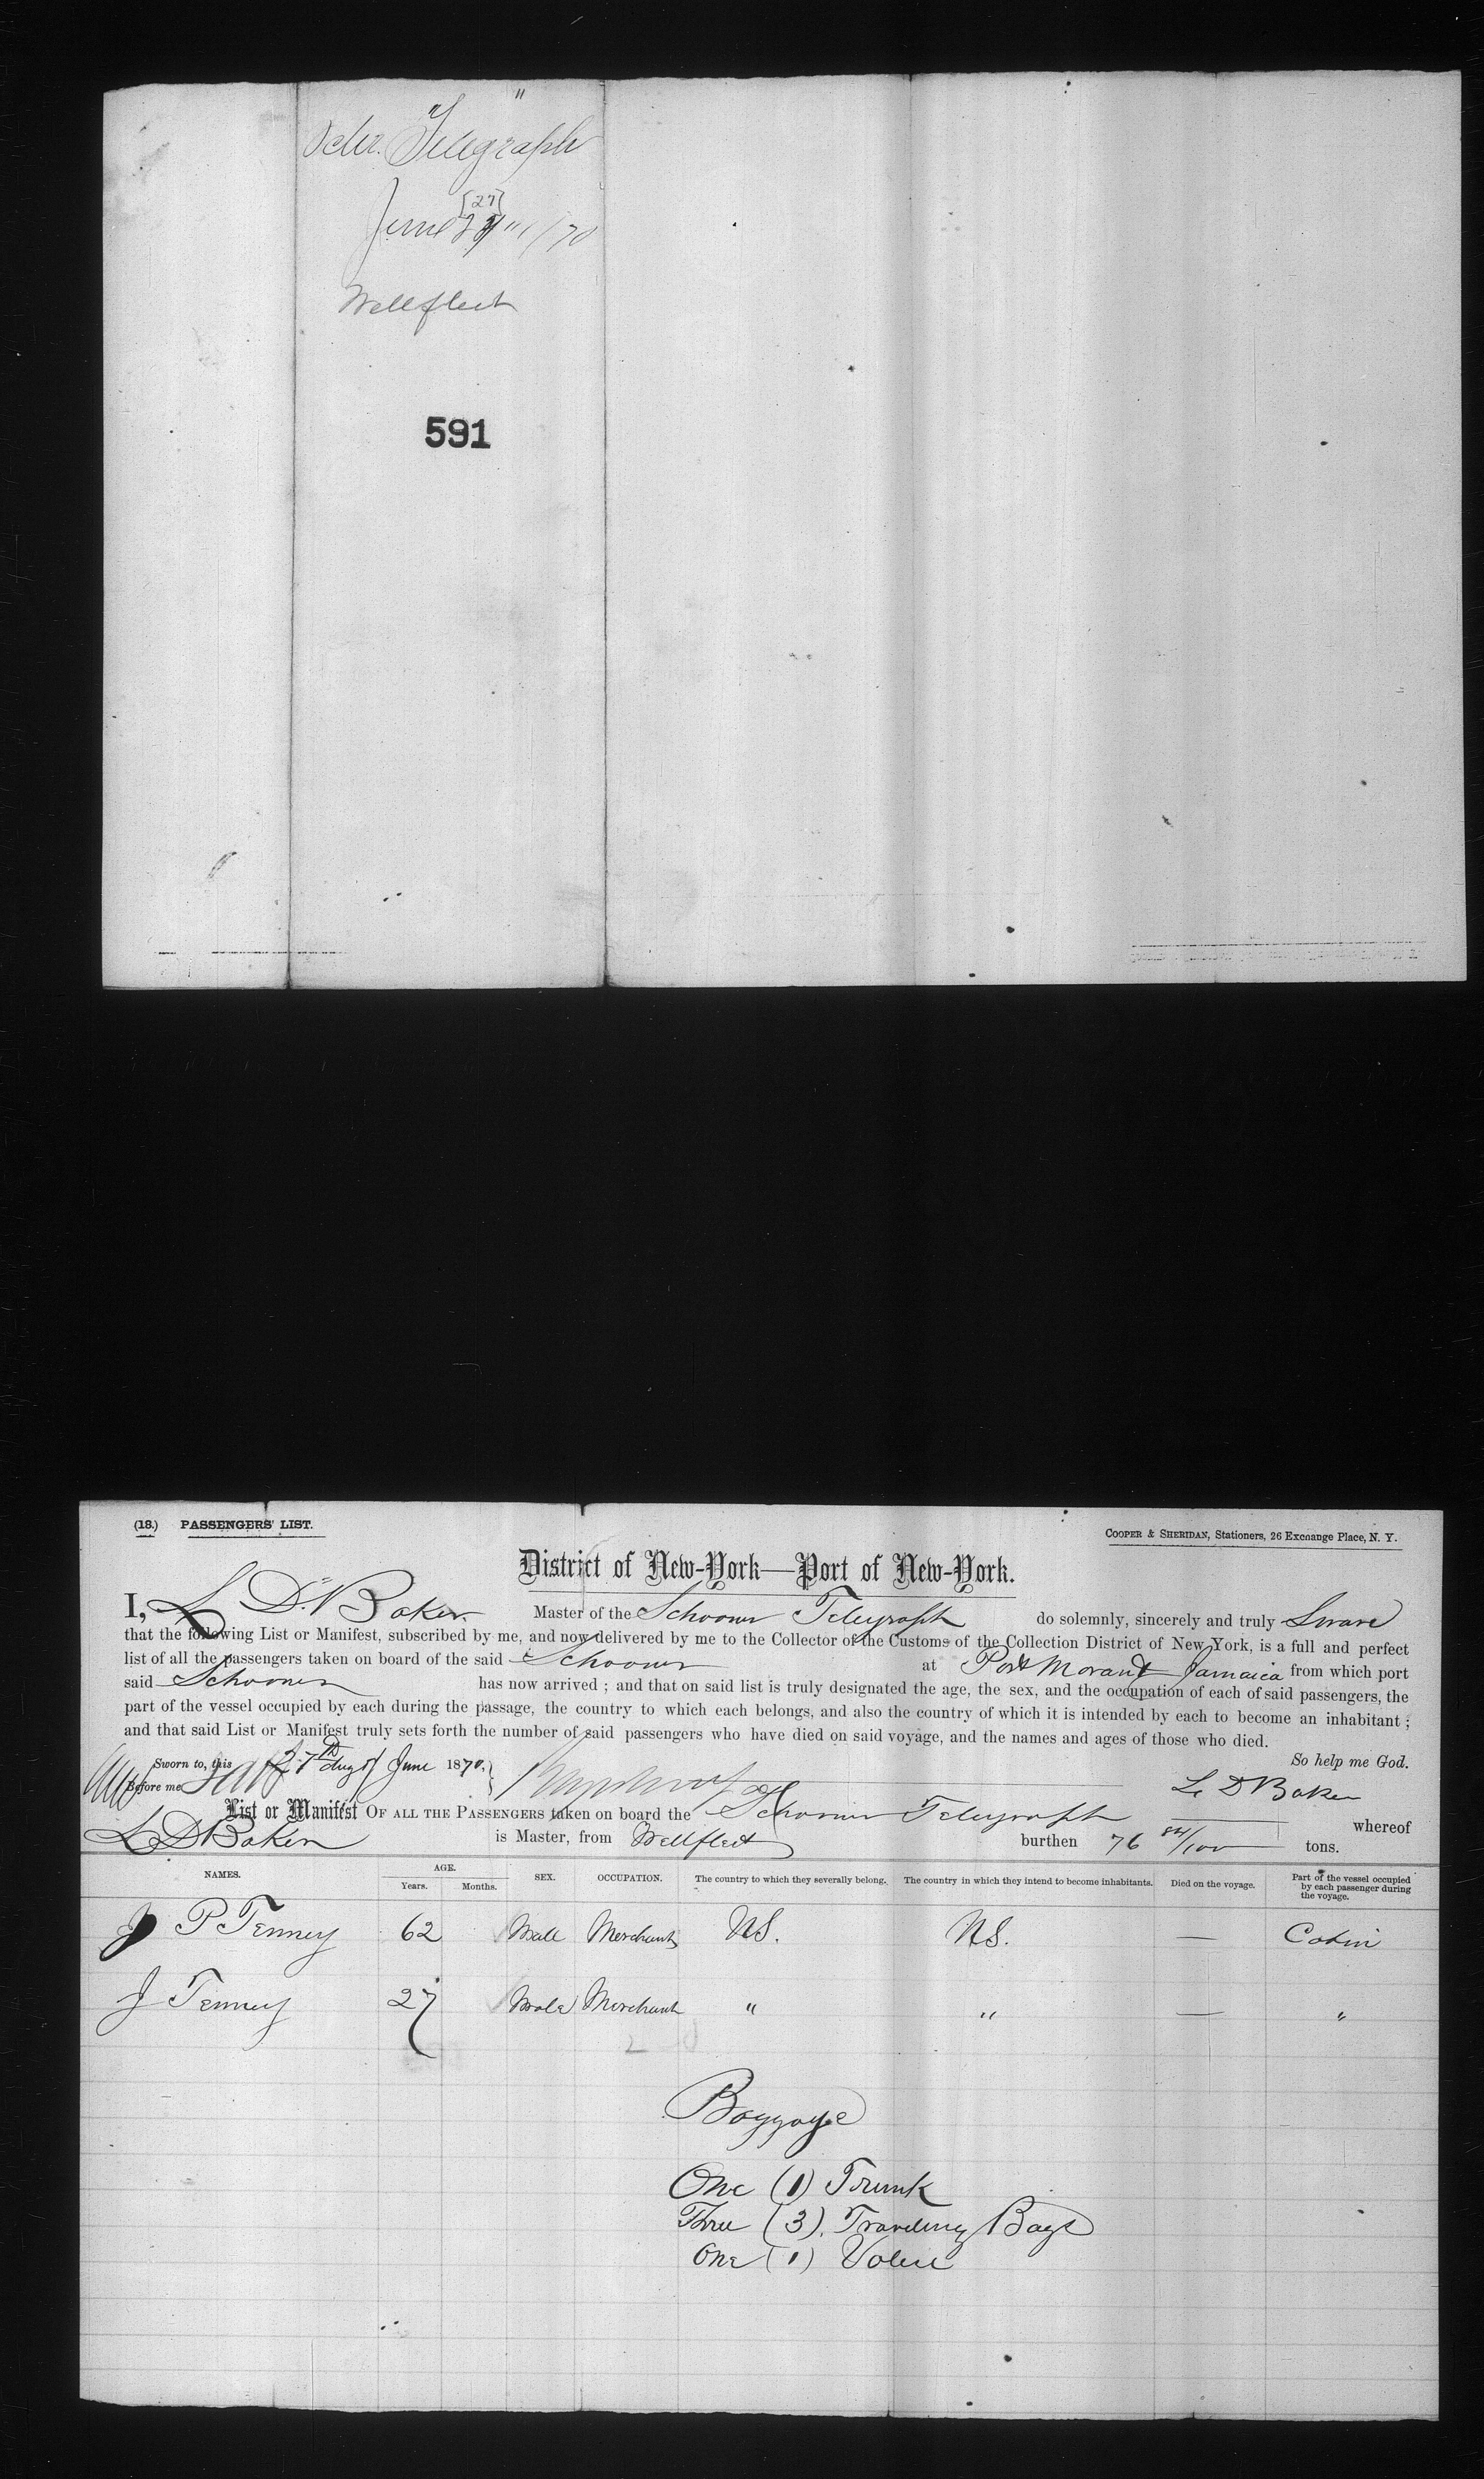 Schr. "Telegraph"
[27]
June 27"/70
Wellfleet
591
(18.) PASSENGERS' LIST.
COOPER & SHERIDAN, Stationers, 26 Exchange Place, N. Y.
District of New-York—Port of New-York.
I, L D. Baker Master of the Schooner Telegraph do solemnly, sincerely and truly Sware
that the following List or Manifest, subscribed by me, and now delivered by me to the Collector of the Customs of the Collection District of New York, is a full and perfect
list of all the passengers taken on board of the said Schooner at Port Morant Jamaica from which port
said Schooner has now arrived ; and that on said list is truly designated the age, the sex, and the occupation of each of said passengers, the
part of the vessel occupied by each during the passage, the country to which each belongs, and also the country of which it is intended by each to become an inhabitant ;
and that said List or Manifest truly sets forth the number of said passengers who have died on said voyage, and the names and ages of those who died.
So help me God.
Sworn to, this 27th day of June 1870.
Before me
L D Baker
List or Manifest OF ALL THE PASSENGERS taken on board the Schooner Telegraph whereof
L D Baker is Master, from Wellfleet burthen 76 84/100 tons.
NAMES. AGE. Years. Months. SEX. OCCUPATION. The country to which they severally belong. The country in which they intend to become inhabitants. Died on the voyage. Part of the vessel occupied by each passenger during the voyage.
J P Tenney 62 Male Merchant U.S. U.S. — Cabin
J Tenney 27 Male Merchant " " — "
2
Baggage
One (1) Trunk
Three (3) Traveling Bags
One (1) Valise